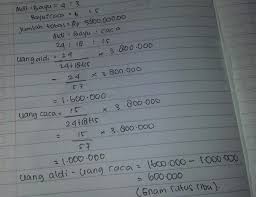 Aldi : Bayu = 4 : 3
Bayu : caca = 6 : 5
Jumlah total = Rp 3.800.000.00
Aldi : Bayu : caca
24 : 18 : 15
Uang aldi = 24 / 24+18+15 × 3.800.000
= 24 / 57 × 3.800.000
= 1.600.000
Uang caca = 15 / 24+18+15 × 3.800.000
= 15 / 57 × 3.800.000
= 1.000.000
Uang aldi - uang caca = 1600.000 - 1000.000
= 600.000
(Enam ratus ribu).